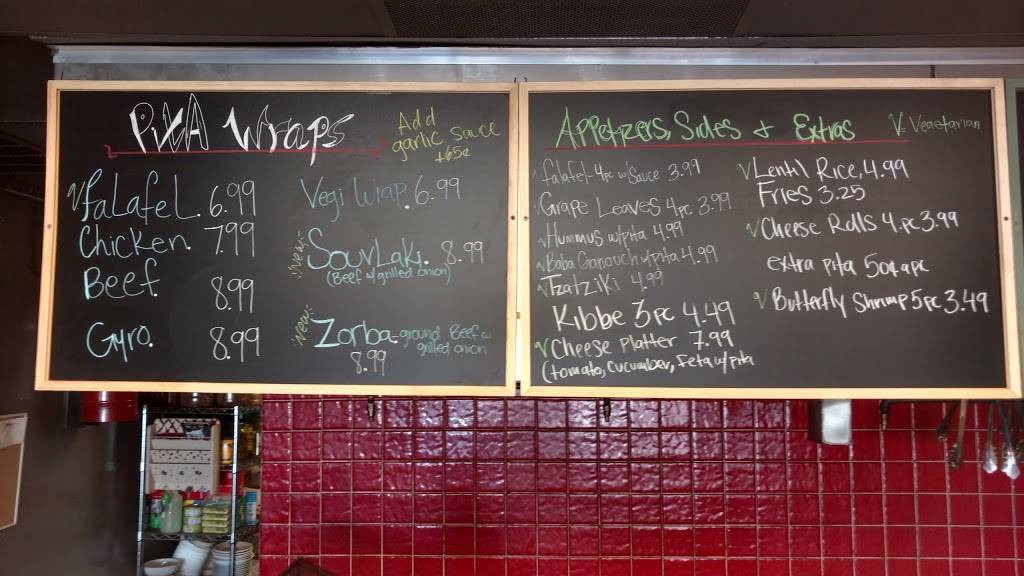 PitA Wraps
Add
garlic sauce
+65¢
V Falafel. 6.99
Chicken. 7.99
Beef. 8.99
Gyro. 8.99
Vegi Wrap. 6.99
"New" Souvlaki. 8.99
(Beef w/grilled onion)
"New" Zorba- ground Beef w
grilled onion
8.99
Appetzers, Sides & Extras
V = Vegetarian
falafel 4pc w/Sauce 3.99
Grape Leaves 4pc 3.99
V Hummus w/pita 4.99
V Baba Ganouch w/Pita 4.99
V Tzatziki 4.99
Kibbe 3pc 4.49
V Cheese Platter 7.99
(tomato, cucumber, Feta w/pita
V Lentil Rice, 4.99
Fries 3.25
V Cheese Rolls 4.pc 3.99
extra pita 50¢ a pc
V Butterfly Shrimp 5pc 3.49